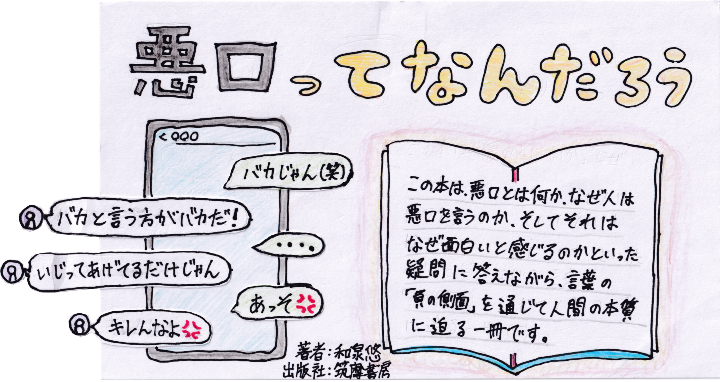 悪口ってなんだろう
< ○○○
バカじゃん(笑)
バカと言う方がバカだ!
・・・・
いじってあげてるだけじゃん
あっそ
キレんなよ
著者:和泉悠
出版社:筑摩書房
この本は、悪口とは何か、なぜ人は
悪口を言うのか、そしてそれは
なぜ面白いと感じるのかといった
疑問に答えながら、言葉の
「負の側面」を通じて人間の本質
に迫る一冊です。